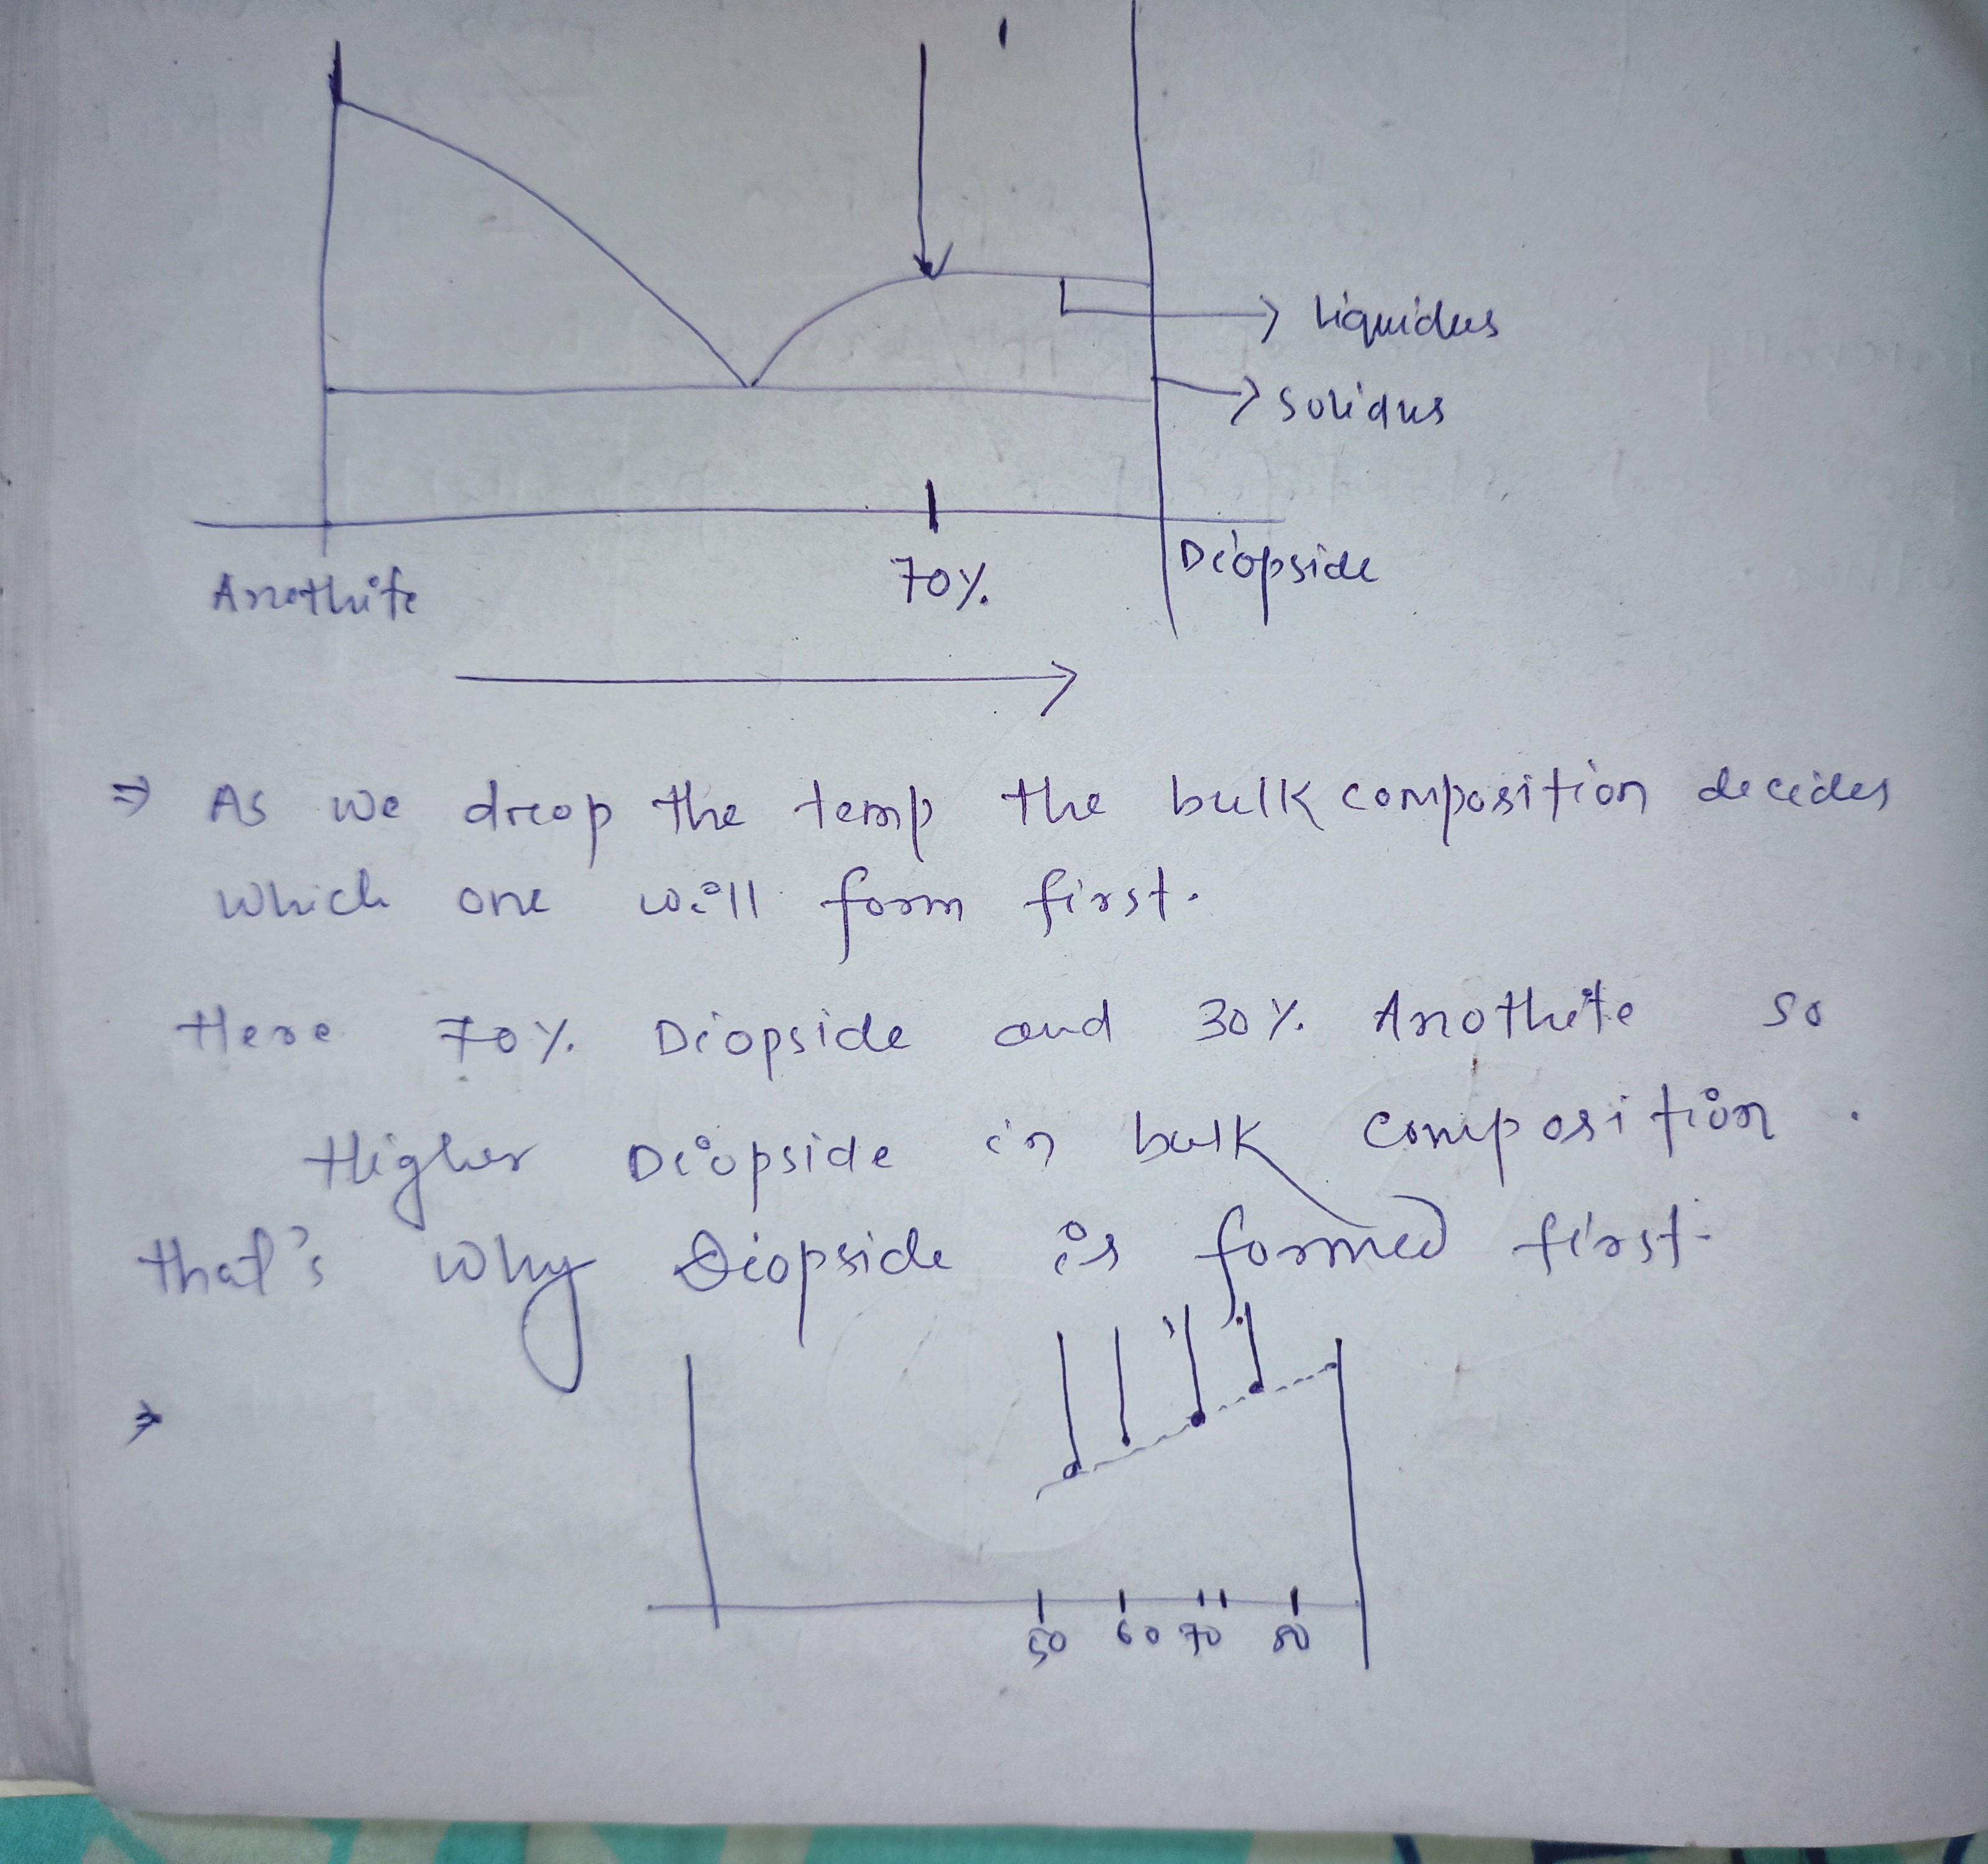 Liquidus
Solidus
Anothite 70% Diopside
⇒ As we drop the temp the bulk composition decides
which one will form first.
Here 70% Diopside and 30% Anothite so
Higher Diopside in bulk composition.
that's why Diopside is formed first.
⇒
50 60 70 80